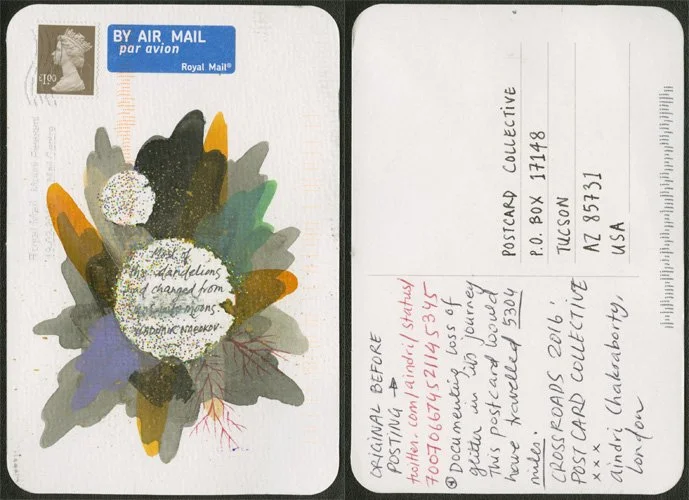 BY AIR MAIL
par avion
Royal Mail®
Royal Mail
Most of
the dandelions
had changed from
moons
VLADIMIR NABOKOV
POSTCARD COLLECTIVE
P.O. BOX 17148
TUCSON
AZ 85731
USA
ORIGINAL BEFORE
POSTING →
twitter.com/aindri/status/
700706674521145345
Documenting loss of
glitter in its journey
This postcard would
have travelled 5304
miles.
CROSSROADS 2016!
POSTCARD COLLECTIVE
x x x
aindri Chakraborty,
London